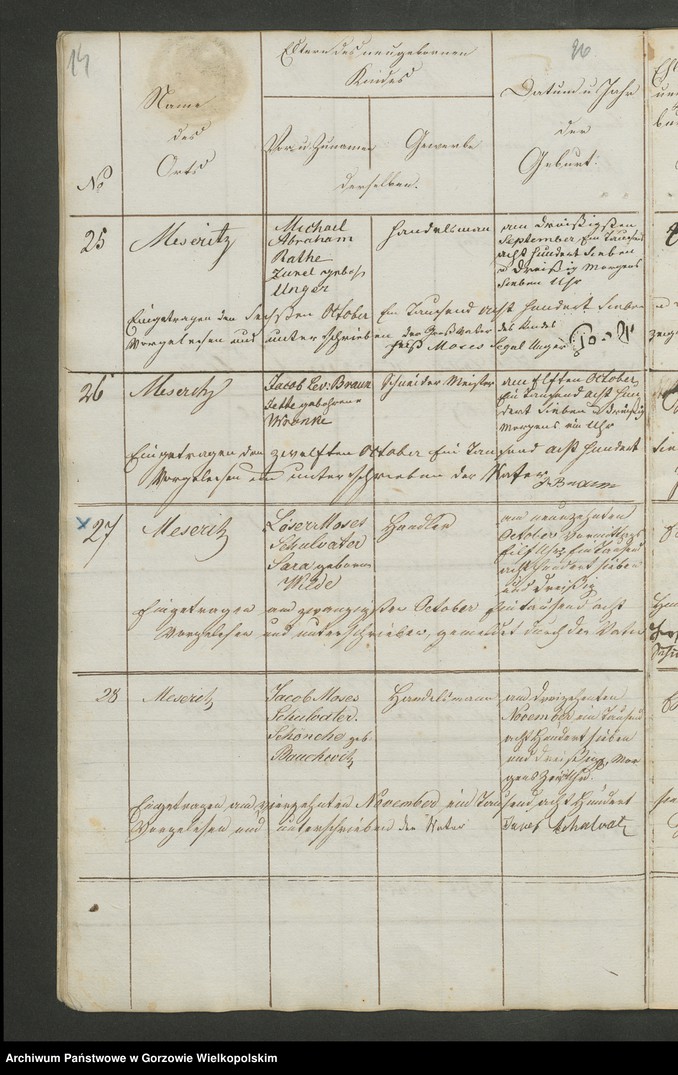 14
26
Eltern des neugebornen
Kindes
Name
des
Orts
Vor u. Zunamen
Gewerbe
Datum u. Jahr
der
Geburt:
No
derselben.
25
Meseritz
Michael
Abraham
Rathe
Zurel gebor
Unger
Handelsman
am dreißigsten
September Ein Tausend
acht hundert sieben
u dreißig Morgens
sieben Uhr
Eingetragen den October Ein Tausend acht hundert sieben
Vorgelesen und unterschrieben der Großvater des Kindes
Moses Segal Unger
26
Meseritz
Jacob Lev: Braun
Jette geborene
Wronke
Schneider Meister
am elften October
Ein Tausend acht hun
dert sieben u Dreißig
Morgens ein Uhr
Eingetragen den zwelften October Ein Tausend acht hundert
Vorgelesen un unterschrieben der Vater
Braun
27
Meseritz
Löser Moses
Schulvater
Sara geboren
Wilde
Handler
am neunzehnten
October Vormittags
Uhr Ein tausend
acht hundert sieben
und dreißig
Eingetragen am zwanzigsten October Ein tausend acht
Vorgelesen und unterschrieben, gemeldet durch den Vater
28
Meseritz
Jacob Moses
Schulvater.
Schönche geb
Bauchwitz
Handelsmann
am dreizehnten
November ein Tausend
acht Hundert sieben
und dreißig, Mor
gens
Eingetragen am vierzehnten November ein Tausend acht Hundert
Vorgelesen und unterschrieben der Vater
Jacob Schulvater
Archiwum Państwowe w Gorzowie Wielkopolskim